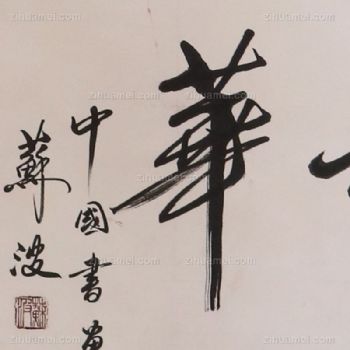 華
中國書畫
蘇波
zihuamei.com